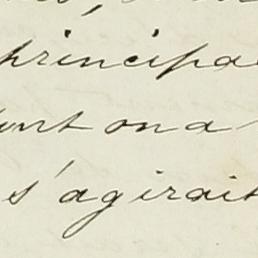 principa
dont on a
s'agirait